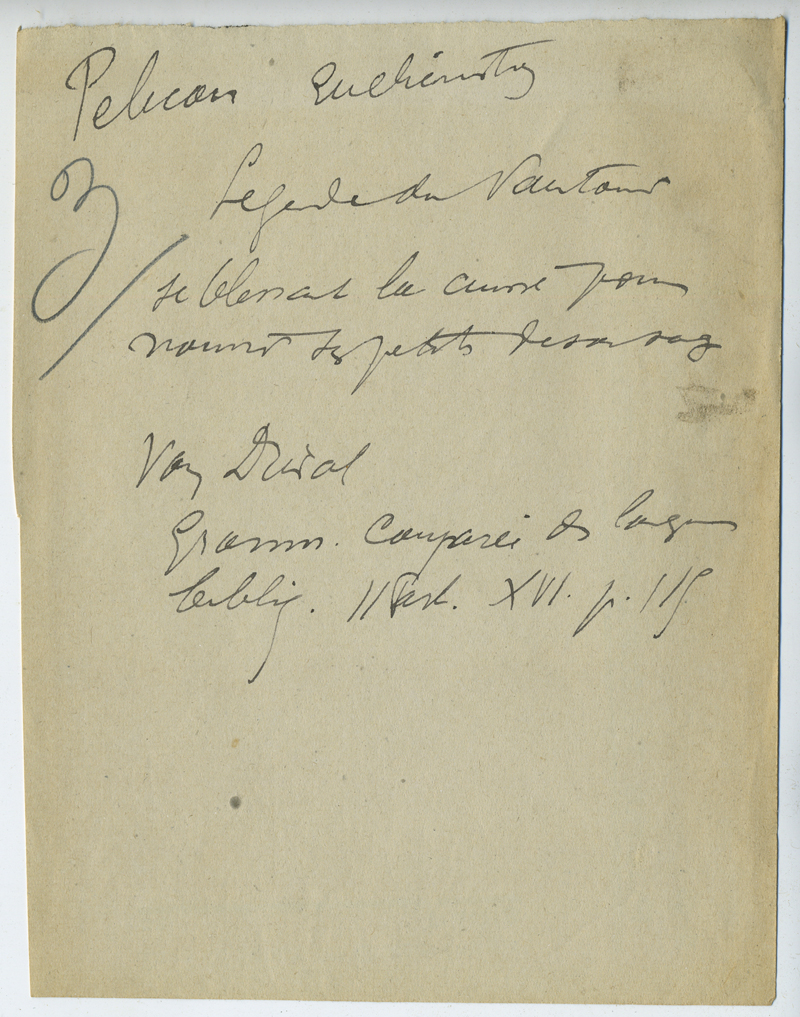 Pelican Eucharistiq
3/
Legende du Vautour
se blessant la cuisse pour
nourrir ses petits de son sang
Voy Drival
Gramm. Comparée des langues
bibliq. II Part. XVI. p. 115